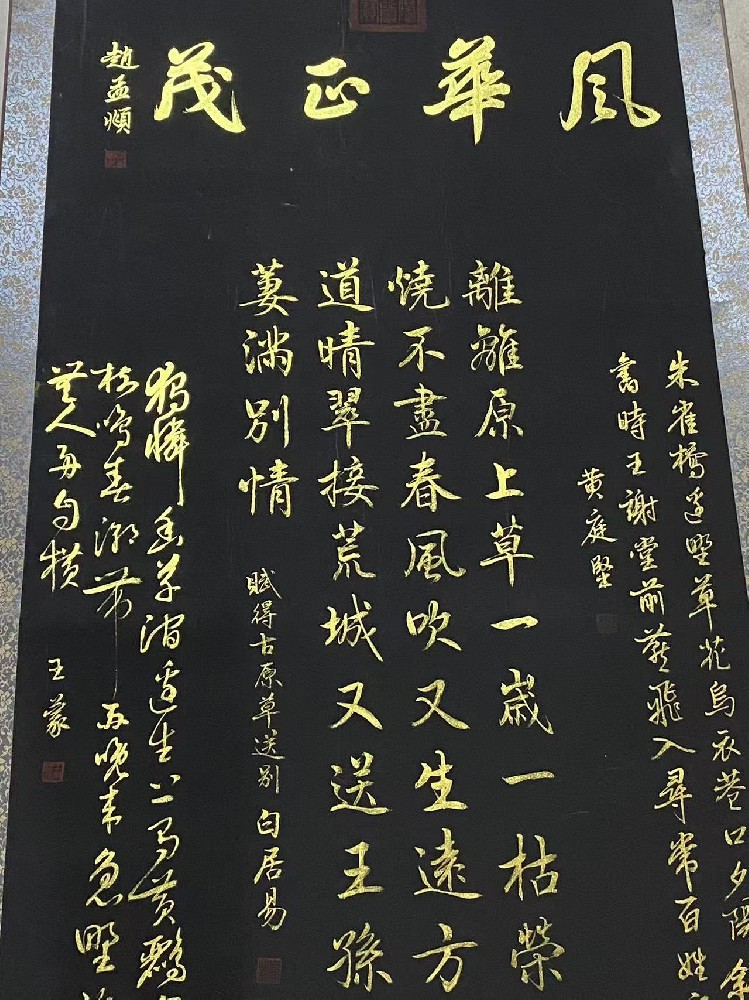 风華正茂
趙孟頫
朱雀橋邊野草花烏衣巷口夕陽
舊時王謝堂前燕飛入尋常百姓
黄庭堅
離離原上草一歲一枯榮
燒不盡春風吹又生遠方
道晴翠接荒城又送王孫
萋滿别情
賦得古原草送别 白居易
獨憐幽草澗邊生上有黄鸝
樹鳴春潮帶雨晚來急野
無人舟自横
王蒙